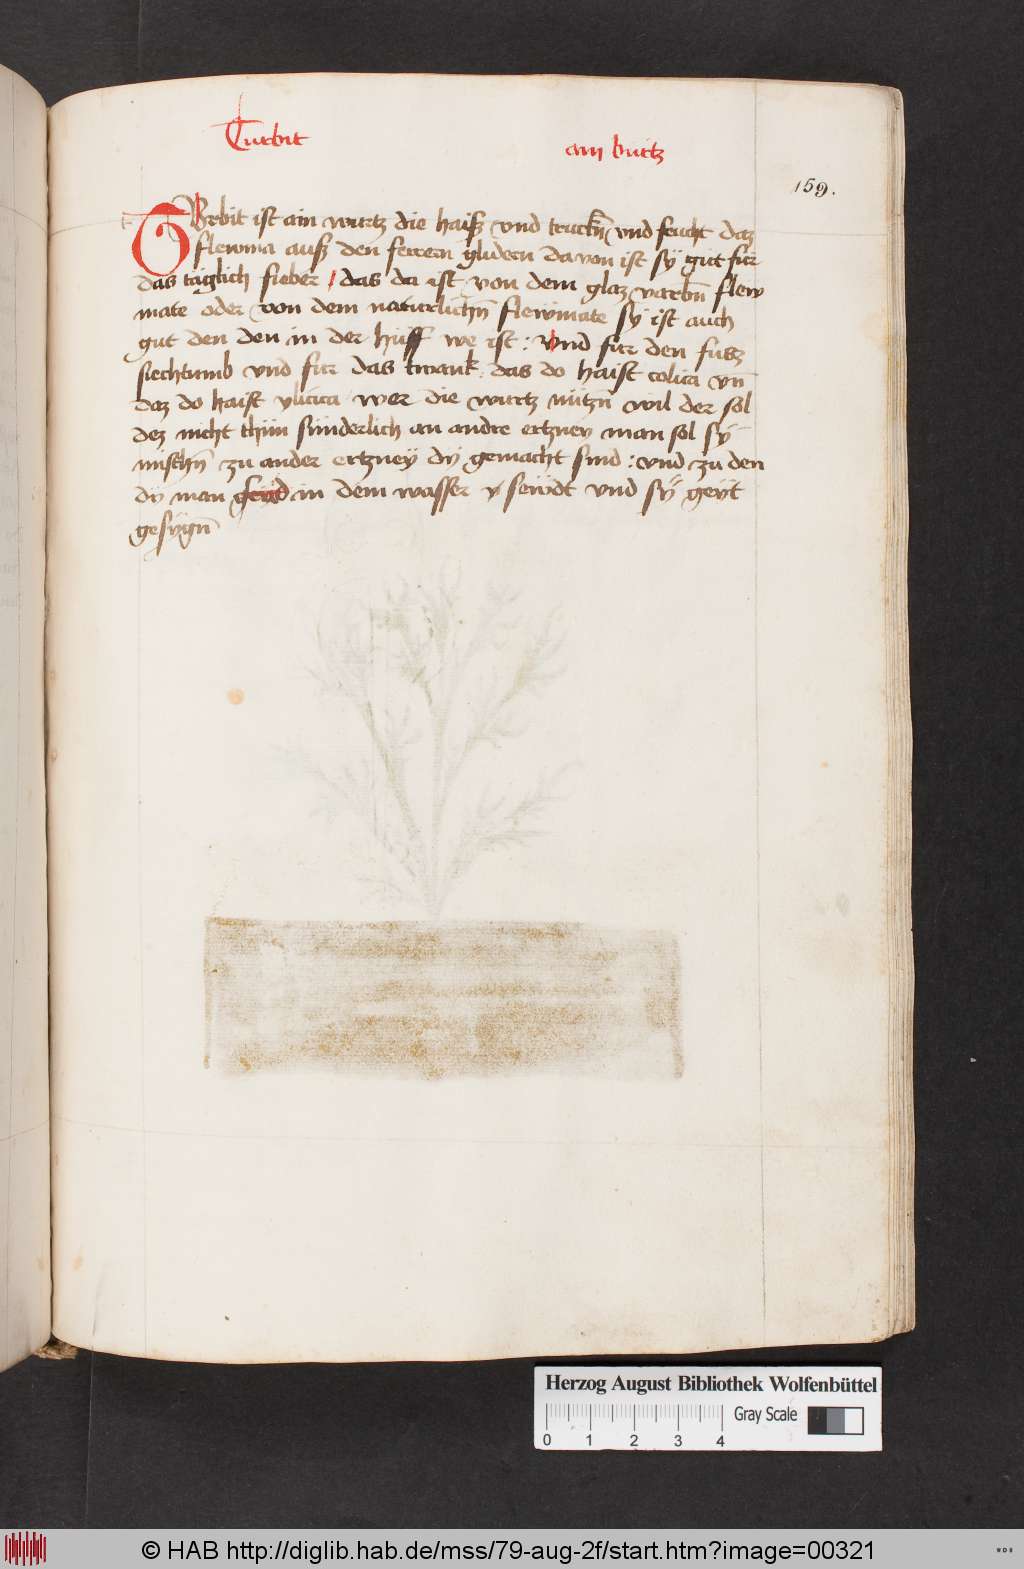 Turbit
ain burtz
159.
TVrbit ist ain wurtz die haiß vnd truckñ vnd feucht daz
flewma auß den ferren glidern da von ist sÿ gut für
das täglich fieber / das da ist von dem glaz varbñ flew
mate oder von dem naturlichñ flewmate sÿ ist auch
gut den den in der huff we ist : vnd für den fusz
siechtumb vnd für das twank das do haist colica vñ
daz do haist yliaca wer die wurtz nützñ wil der sol
dez nicht thün sünderlich an andre ertzney man sol sÿ
mischñ zu ander ertzneÿ dÿ gemacht sind : vnd zu den
dÿ man in dem wasser seudt vnd sÿ geyt
Herzog August Bibliothek Wolfenbüttel
0 1 2 3 4
Gray Scale
© HAB http://diglib.hab.de/mss/79-aug-2f/start.htm?image=00321